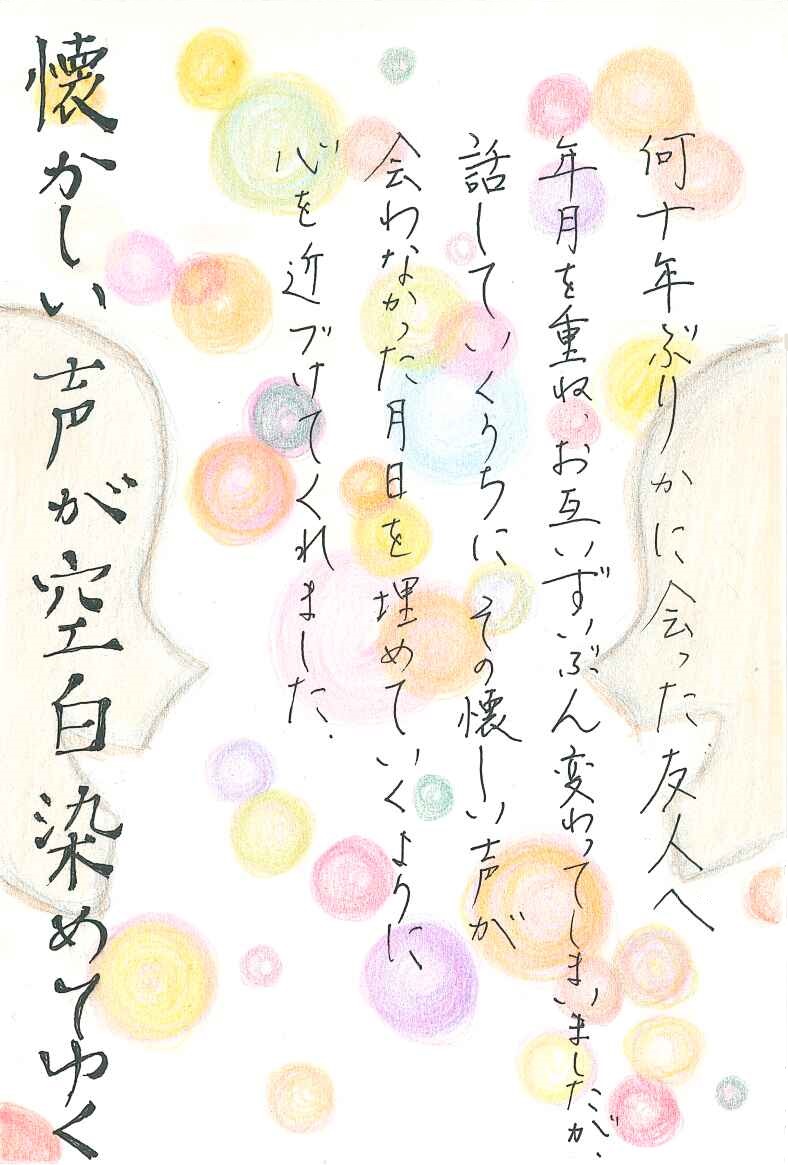 何十年ぶりかに会った友人へ
年月を重ね、お互いずいぶん変わってしまいましたが、
話していくうちに その懐しい声が
会わなかった月日を埋めていくように
心を近づけてくれました.
懐かしい声が空白染めてゆく